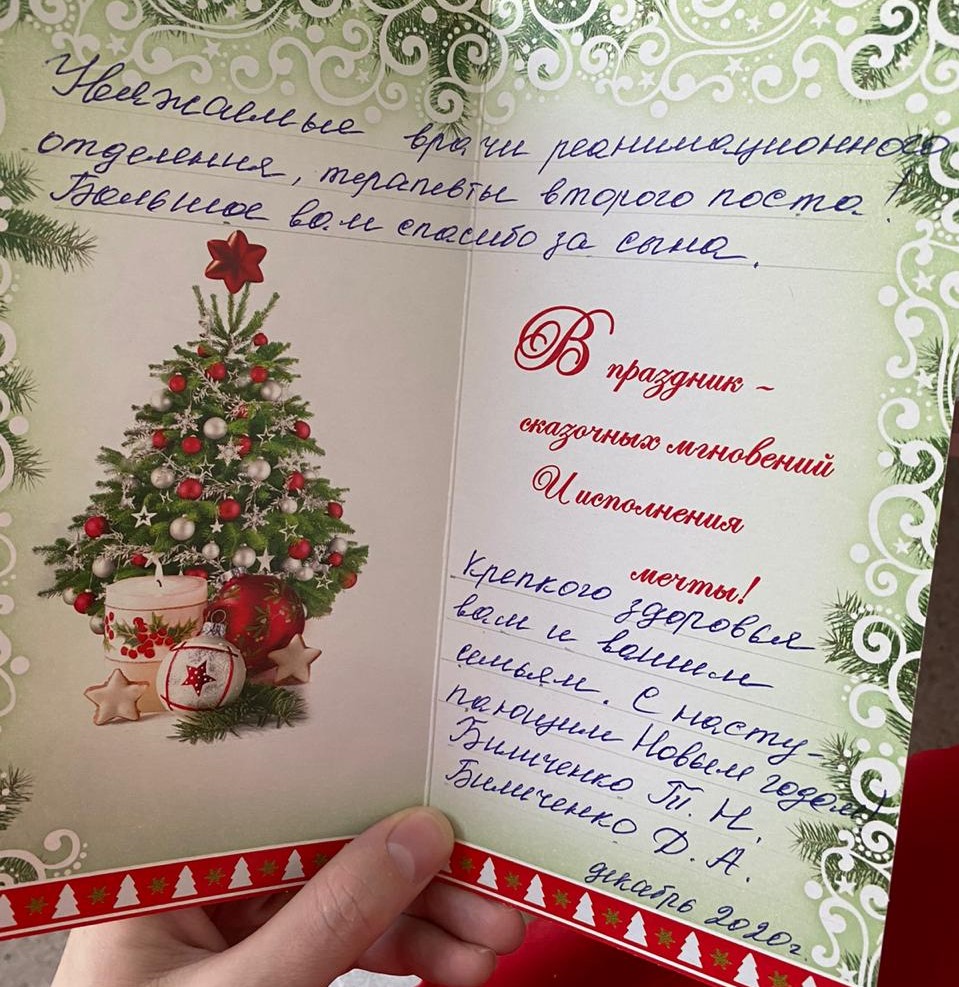 Уважаемые врачи реанимационного
отделения, терапевты второго поста!
Большое вам спасибо за сына.
В праздник –
сказочных мгновений
И исполнения
мечты!
Крепкого здоровья
вам и вашим
семьям. С насту-
пающим Новым годом!
Биличенко Т. Н.
Биличенко Д. А.
декабрь 2020г.